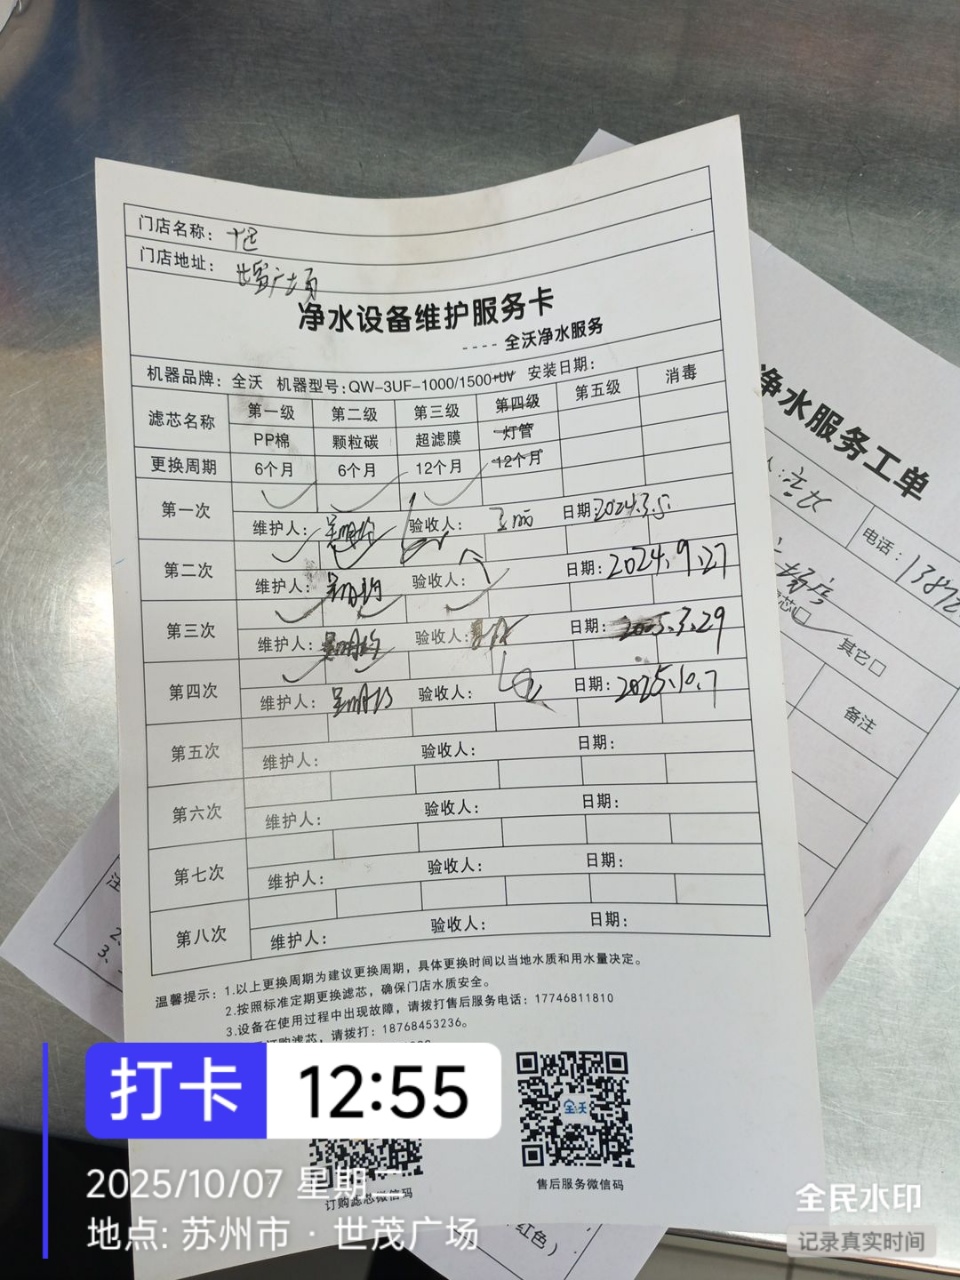 门店名称：
门店地址：世贸广场
净水设备维护服务卡
---- 全沃净水服务
机器品牌：全沃 机器型号：QW-3UF-1000/1500+UV 安装日期：
滤芯名称 第一级 第二级 第三级 第四级 第五级 消毒
PP棉 颗粒碳 超滤膜 灯管
更换周期 6个月 6个月 12个月 12个月
第一次
维护人： 验收人： 日期：2024.3.5
第二次
维护人： 验收人： 日期：2024.9.27
第三次
维护人： 验收人： 日期：2025.3.29
第四次
维护人： 验收人： 日期：2025.10.7
第五次
维护人： 验收人： 日期：
第六次
维护人： 验收人： 日期：
第七次
维护人： 验收人： 日期：
第八次
维护人： 验收人： 日期：
温馨提示：1.以上更换周期为建议更换周期，具体更换时间以当地水质和用水量决定。
2.按照标准定期更换滤芯，确保门店水质安全。
3.设备在使用过程中出现故障，请拨打售后服务电话：17746811810
订购滤芯，请拨打：18768453236。
全沃
订购滤芯微信码
售后服务微信码
净水服务工单
电话：
其它□
备注
红色）
打卡 12:55
2025/10/07 星期二
地点: 苏州市 · 世茂广场
全民水印
记录真实时间